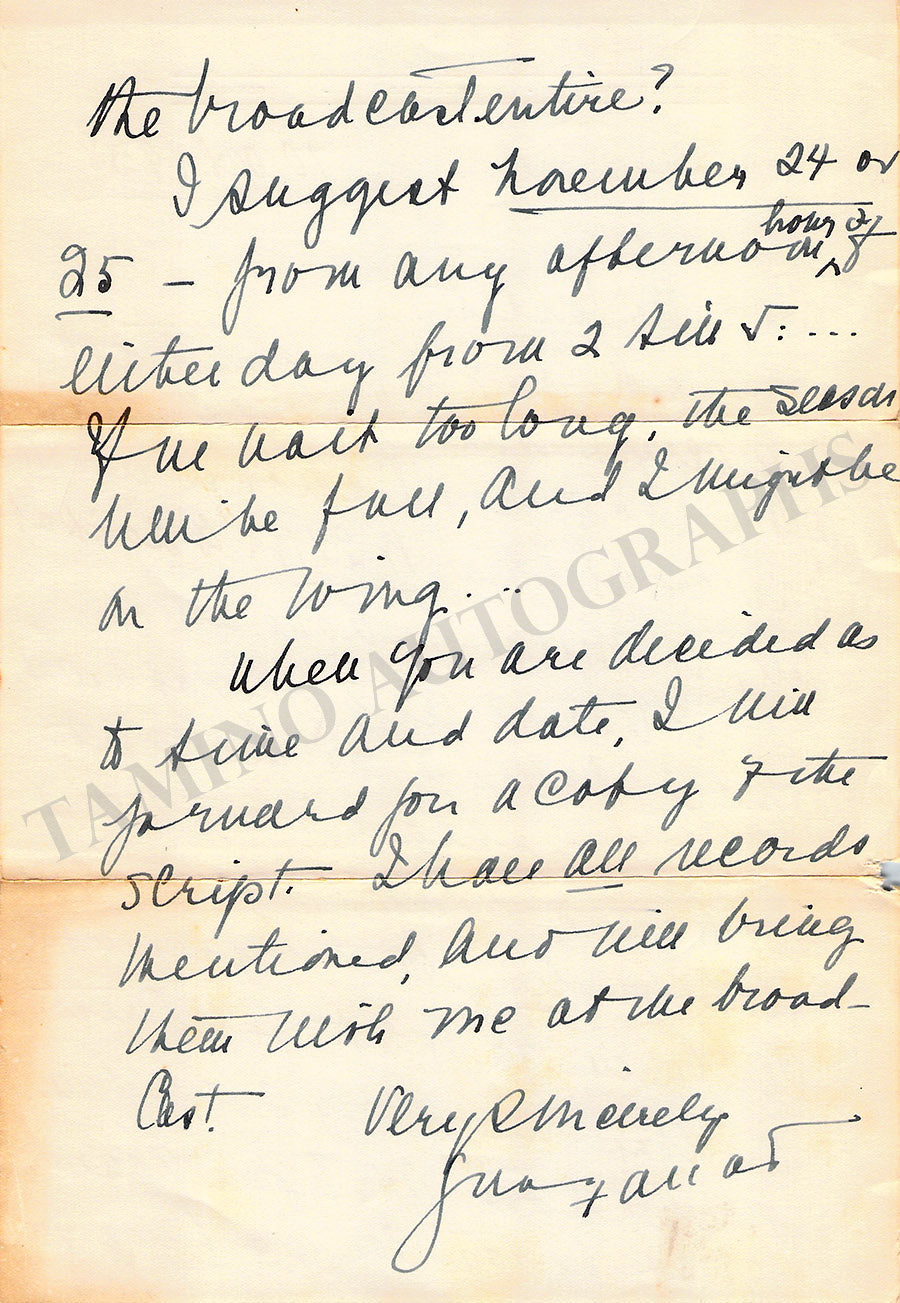 the broadcast entire?
I suggest november 24 or
25 – from any afternoon, hour of
either day from 2 till 5: ...
If we wait too long, the season
will be full, and I might be
on the wing...
When you are decided as
to time and date, I will
forward you a copy of the
script. I have all records
mentioned, and will bring
them with me at the broad-
cast. Very Sincerely
Farrar
TAMINO AUTOGRAPHS